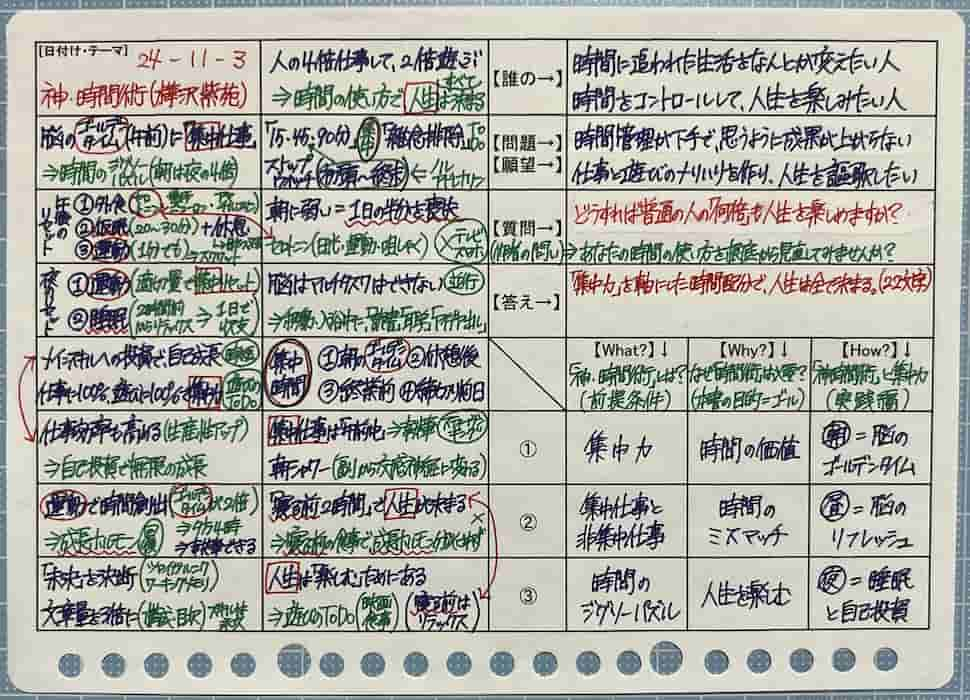 [日付け・テーマ]
24-11-3
神・時間術(樺沢紫苑)
人の4倍仕事して、2倍遊ぶ
⇒時間の使い方で人生はすべて決まる
【誰の→】
時間に追われた生活をなんとか変えたい人
時間をコントロールして、人生を楽しみたい人
脳のゴールデンタイム(午前)に「集中仕事」
⇒時間のジグソーパズル(朝は夜の4倍)
「15・45・90分」
「雑念排除」ToDo
ストップウォッチ
【問題→】
【願望→】
時間管理が下手で、思うように成果が上がらない
仕事と遊びのメリハリを作り、人生を謳歌したい
午後のリセット
①外食
②仮眠(20~30分)+休憩
③運動(1分でも)
朝に弱い=1日の半分を喪失
セロトニン(日光・運動・咀しゃく)
【質問→】
どうすれば普通の人の「何倍」も人生を楽しめますか?
(作者の問い)⇒あなたの時間の使い方を根底から見直してみませんか?
夜のリセット
①運動(適切な量で集中リセット)
②睡眠(2時間前からリラックス⇒1日で
脳はマルチタスクはできない
【答え→】
「集中力」を軸にした時間配分で、人生は全て決まる。(22文字)
メインスキルへの投資で、自己成長
仕事に100%、遊びに100%で
遊びのToDo
集中時間
①朝のゴールデンタイム ②休憩後
③終業前 ④締め切り前日
【What?】↓
「神・時間術」とは?
(前提条件)
【Why?】↓
なぜ「時間術」は必要?
【How?】↓
「神時間術」と集中力
(実践編)
仕事効率も高める(生産性アップ)
⇒自己投資で無限の成長
集中仕事は「午前中」
朝シャワー(副から交感神経に変わる)
①
集中力
時間の価値
朝=脳の
ゴールデンタイム
運動で時間創出(ゴールデンタイムが2倍)
⇒成長ホルモン
「寝る前2時間」で人生が決まる
⇒寝る前の食事で、成長ホルモン分泌せず
②
集中仕事と
非集中仕事
時間の
ミスマッチ
昼=脳の
リフレッシュ
「未来」を決断
ワーキングメモリ
文章量を3倍に(構成・目次)
人生は「楽しむ」ためにある
⇒遊びのToDo(映画
(寝る前はリラックス)
③
時間の
ジグソーパズル
人生を楽しむ
夜=睡眠
と自己投資